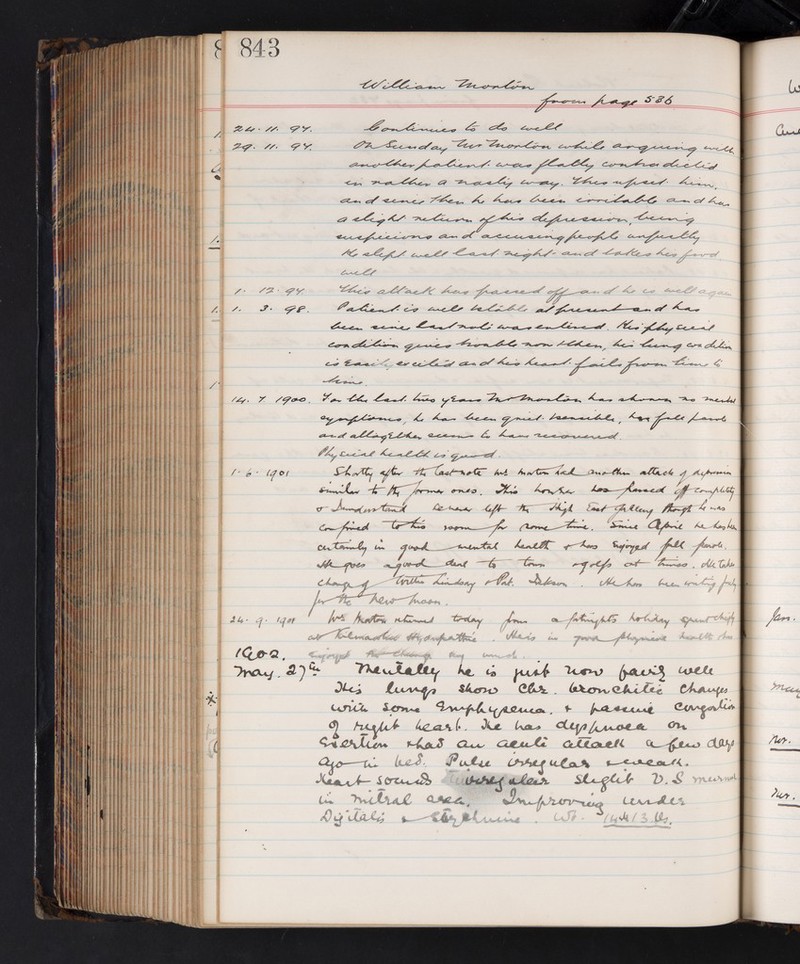 843
William Morton
from page 536
24. 11. 97. Continues to do well
29. 11. 97. On Sunday Mr Morton while arguing with
another patient was flatly contradicted
in rather a nasty way. This upset him,
and since then he has been irritable and has
a slight return of his depression, being
suspicious and accusing people unjustly
He slept well last night and takes his food
well
1. 12. 97 This attack has passed off and he is well again
1. 3. 98. Patient is well at present and has
been since last note was entered. His physical
condition gives trouble now & then, his lung condition
is easily excited and his heart fails from time to
time.
14. 7 1900. For the last two years Mr Morton has shown no mental
symptoms, he has been quiet, sensible, has full parole
and altogether seems to have recovered.
Physical health is good.
1. 6. 1901 Shortly after the last note Mr Morton had another attack of depression
similar to the former ones. This however has passed off completely
& I understand he never left the High East Gallery though he was
confined to his room for some time. Since April he has been
certainly in good mental health & has enjoyed full parole.
He goes a good deal to town & golfs at times. He takes
charge of Lindsay & Pat. He has been writing
for the New Moon.
24. 9. 1901 Mr Morton returned today from a fortnights holiday spent chiefly
at Hydropathic. He is in good physical health & has
enjoyed the change very much.
1902.
May. 27th Mentally he is just now fairly well
His lungs show Chr. bronchitic changes
with some Emphysema, & passive congestion
of right heart. He has dyspnoea on
Exertion & had an acute attack a few days
ago in bed. Pulse irregular & weak.
Heart sounds irregular slight V.S murmur
in mitral area. Improving under
Digitalis & Strychnine. Wt.